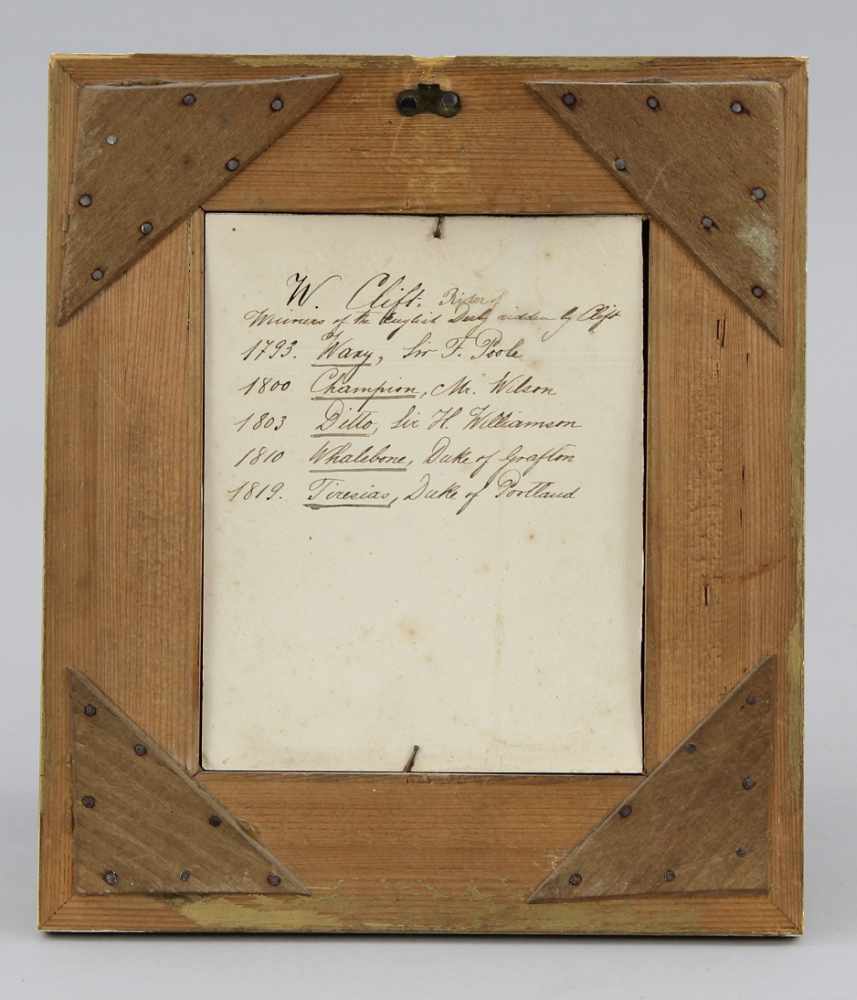 W. Clift. Rider of
Winners of the English Derby ridden by Clift
1793. Waxy, Sir F. Poole
1800 Champion, Mr. Wilson
1803 Ditto, Sir H. Williamson
1810 Whalebone, Duke of Grafton
1819. Tiresias, Duke of Portland